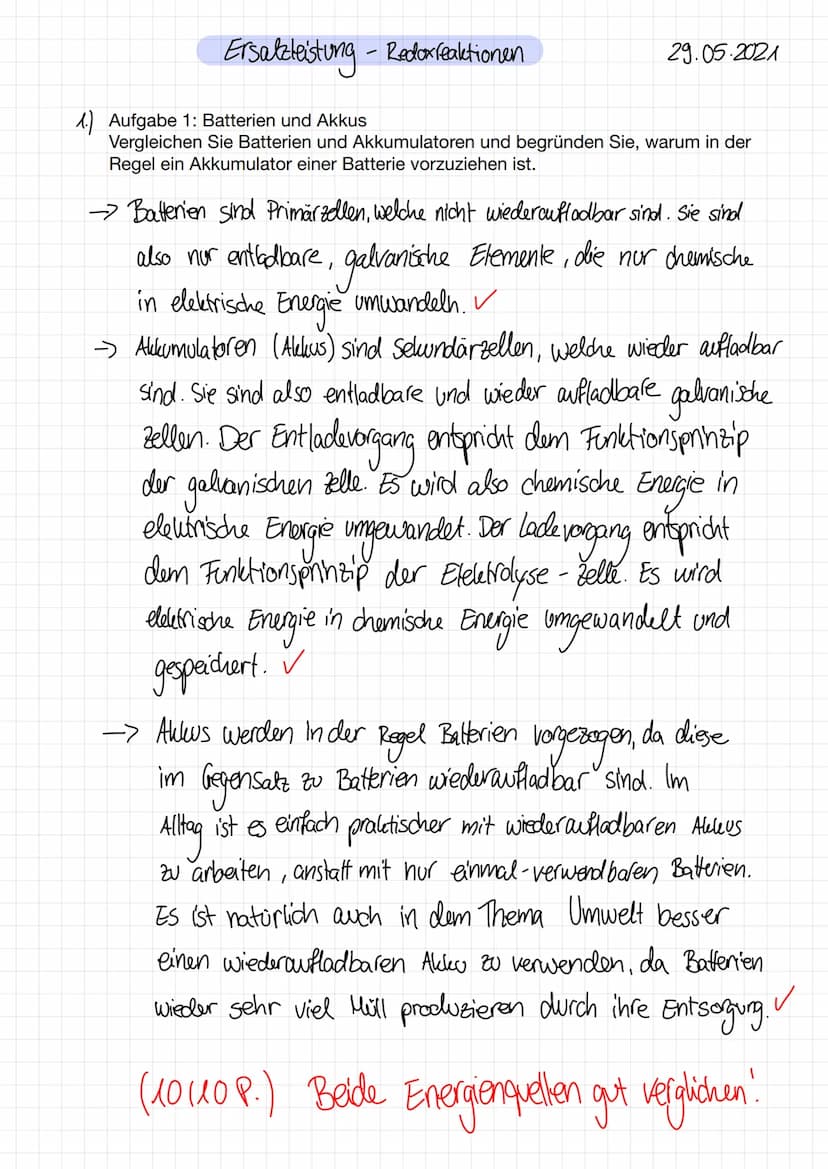 Ersatzleistung - Redoxreaktionen 29.05.2021
1.) Aufgabe 1: Batterien und Akkus
Vergleichen Sie Batterien und Akkumulatoren und begründen Sie, warum in der
Regel ein Akkumulator einer Batterie vorzuziehen ist.
→ Batterien sind Primärzellen, welche nicht wiederaufladbar sind. Sie sind
also nur entladbare, galvanische Elemente, die nur chemische
in elektrische Energie umwandeln. ✓
→ Akkumulatoren (Akkus) sind Sekundärzellen, welche wieder aufladbar
sind. Sie sind also entladbare und wieder aufladbare galvanische
Zellen. Der Entladevorgang entspricht dem Funktionsprinzip
der galvanischen Zelle. Es wird also chemische Energie in
elektrische Energie umgewandet. Der Ladevorgang entspricht
dem Funktionsprinzip der Elelektrolyse - Zelle. Es wird
elektrische Energie in chemische Energie umgewandelt und
gespeichert. ✓
→ Akkus werden in der Regel Batterien vorgezogen, da diese
im Gegensatz zu Batterien wiederaufladbar sind. Im
Alltag ist es einfach praktischer mit wiederaufladbaren Akkus
zu arbeiten, anstatt mit nur einmal-verwendbaren Batterien.
Es ist natürlich auch in dem Thema Umwelt besser
einen wiederaufladbaren Akku zu verwenden, da Batterien
wieder sehr viel Müll produzieren durch ihre Entsorgung. ✓
(10/10 P.) Beide Energienquellen gut verglichen!